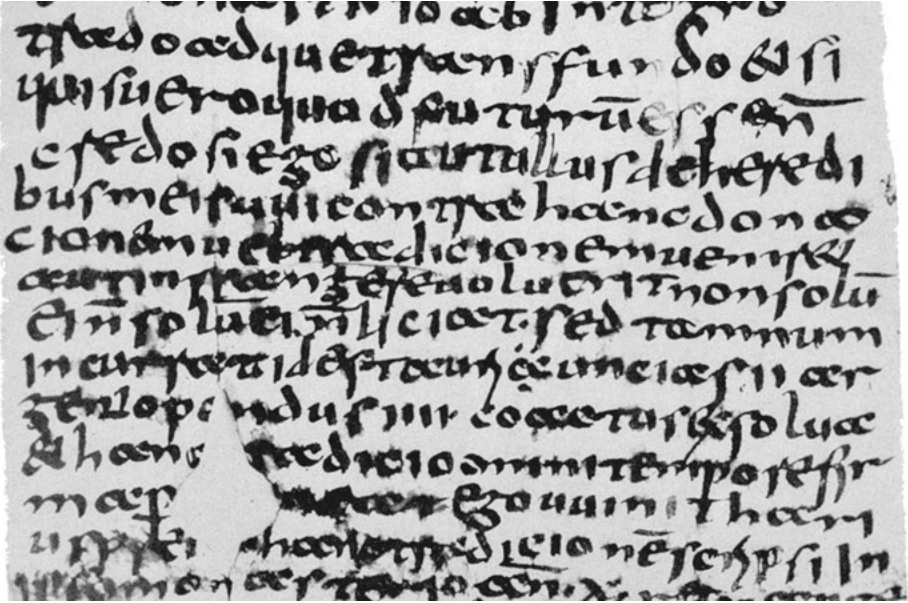 ab integro
trado adque transffundo & si
quis uero quod futurū ess& n̄
credo si ego si aut ullus de heredi
bus meis qui contra hanc dona
cionem uel tradicionem uenire
aut infrangere uoluerit non solū
ei n̄ solū ei n̄ liciat · sed tamnum
incurrat id est auri uncias ii ar
gento pondus iiii coactus exsolua
& hanc tradicio omni tempore fir
mas ego uuinithari
us hanc tradicionē scripsi in
monasterio